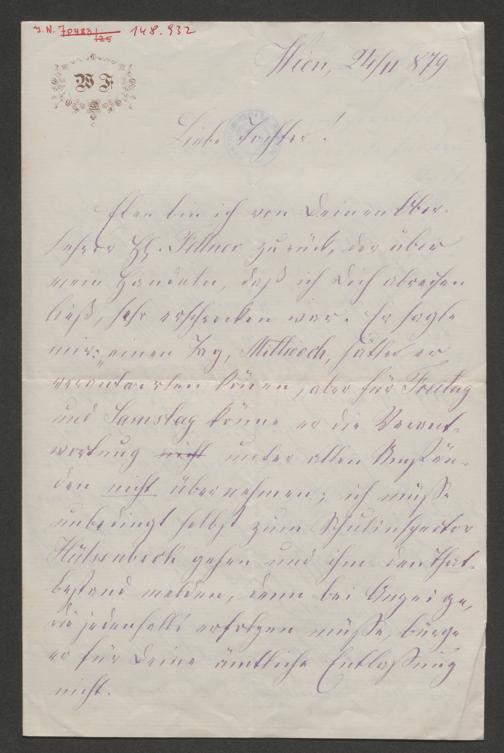 I.N. 70483/125 148.932
W F
Wien, 24/11 879
Liebe Tochter!
Eben bin ich von Deinem Ober-
lehrer H. Fellner zurück, der über
mein Handeln, daß ich Dich abreisen
ließ, sehr erschrocken war. Er sagte
mir: „einen Tag, Mittwoch, hätte er
verantworten können, aber für Freitag
und Samstag könne er die Verant-
wortung nicht unter allen Umstän-
den nicht übernehmen; ich müsse
unbedingt selbst zum Schulinspector
Hülsenbeck gehen und ihm den That-
bestand melden, denn bei Anzeige,
die jedenfalls erfolgen müsse, bürge
er für Deine ämtliche Entlassung
nicht.